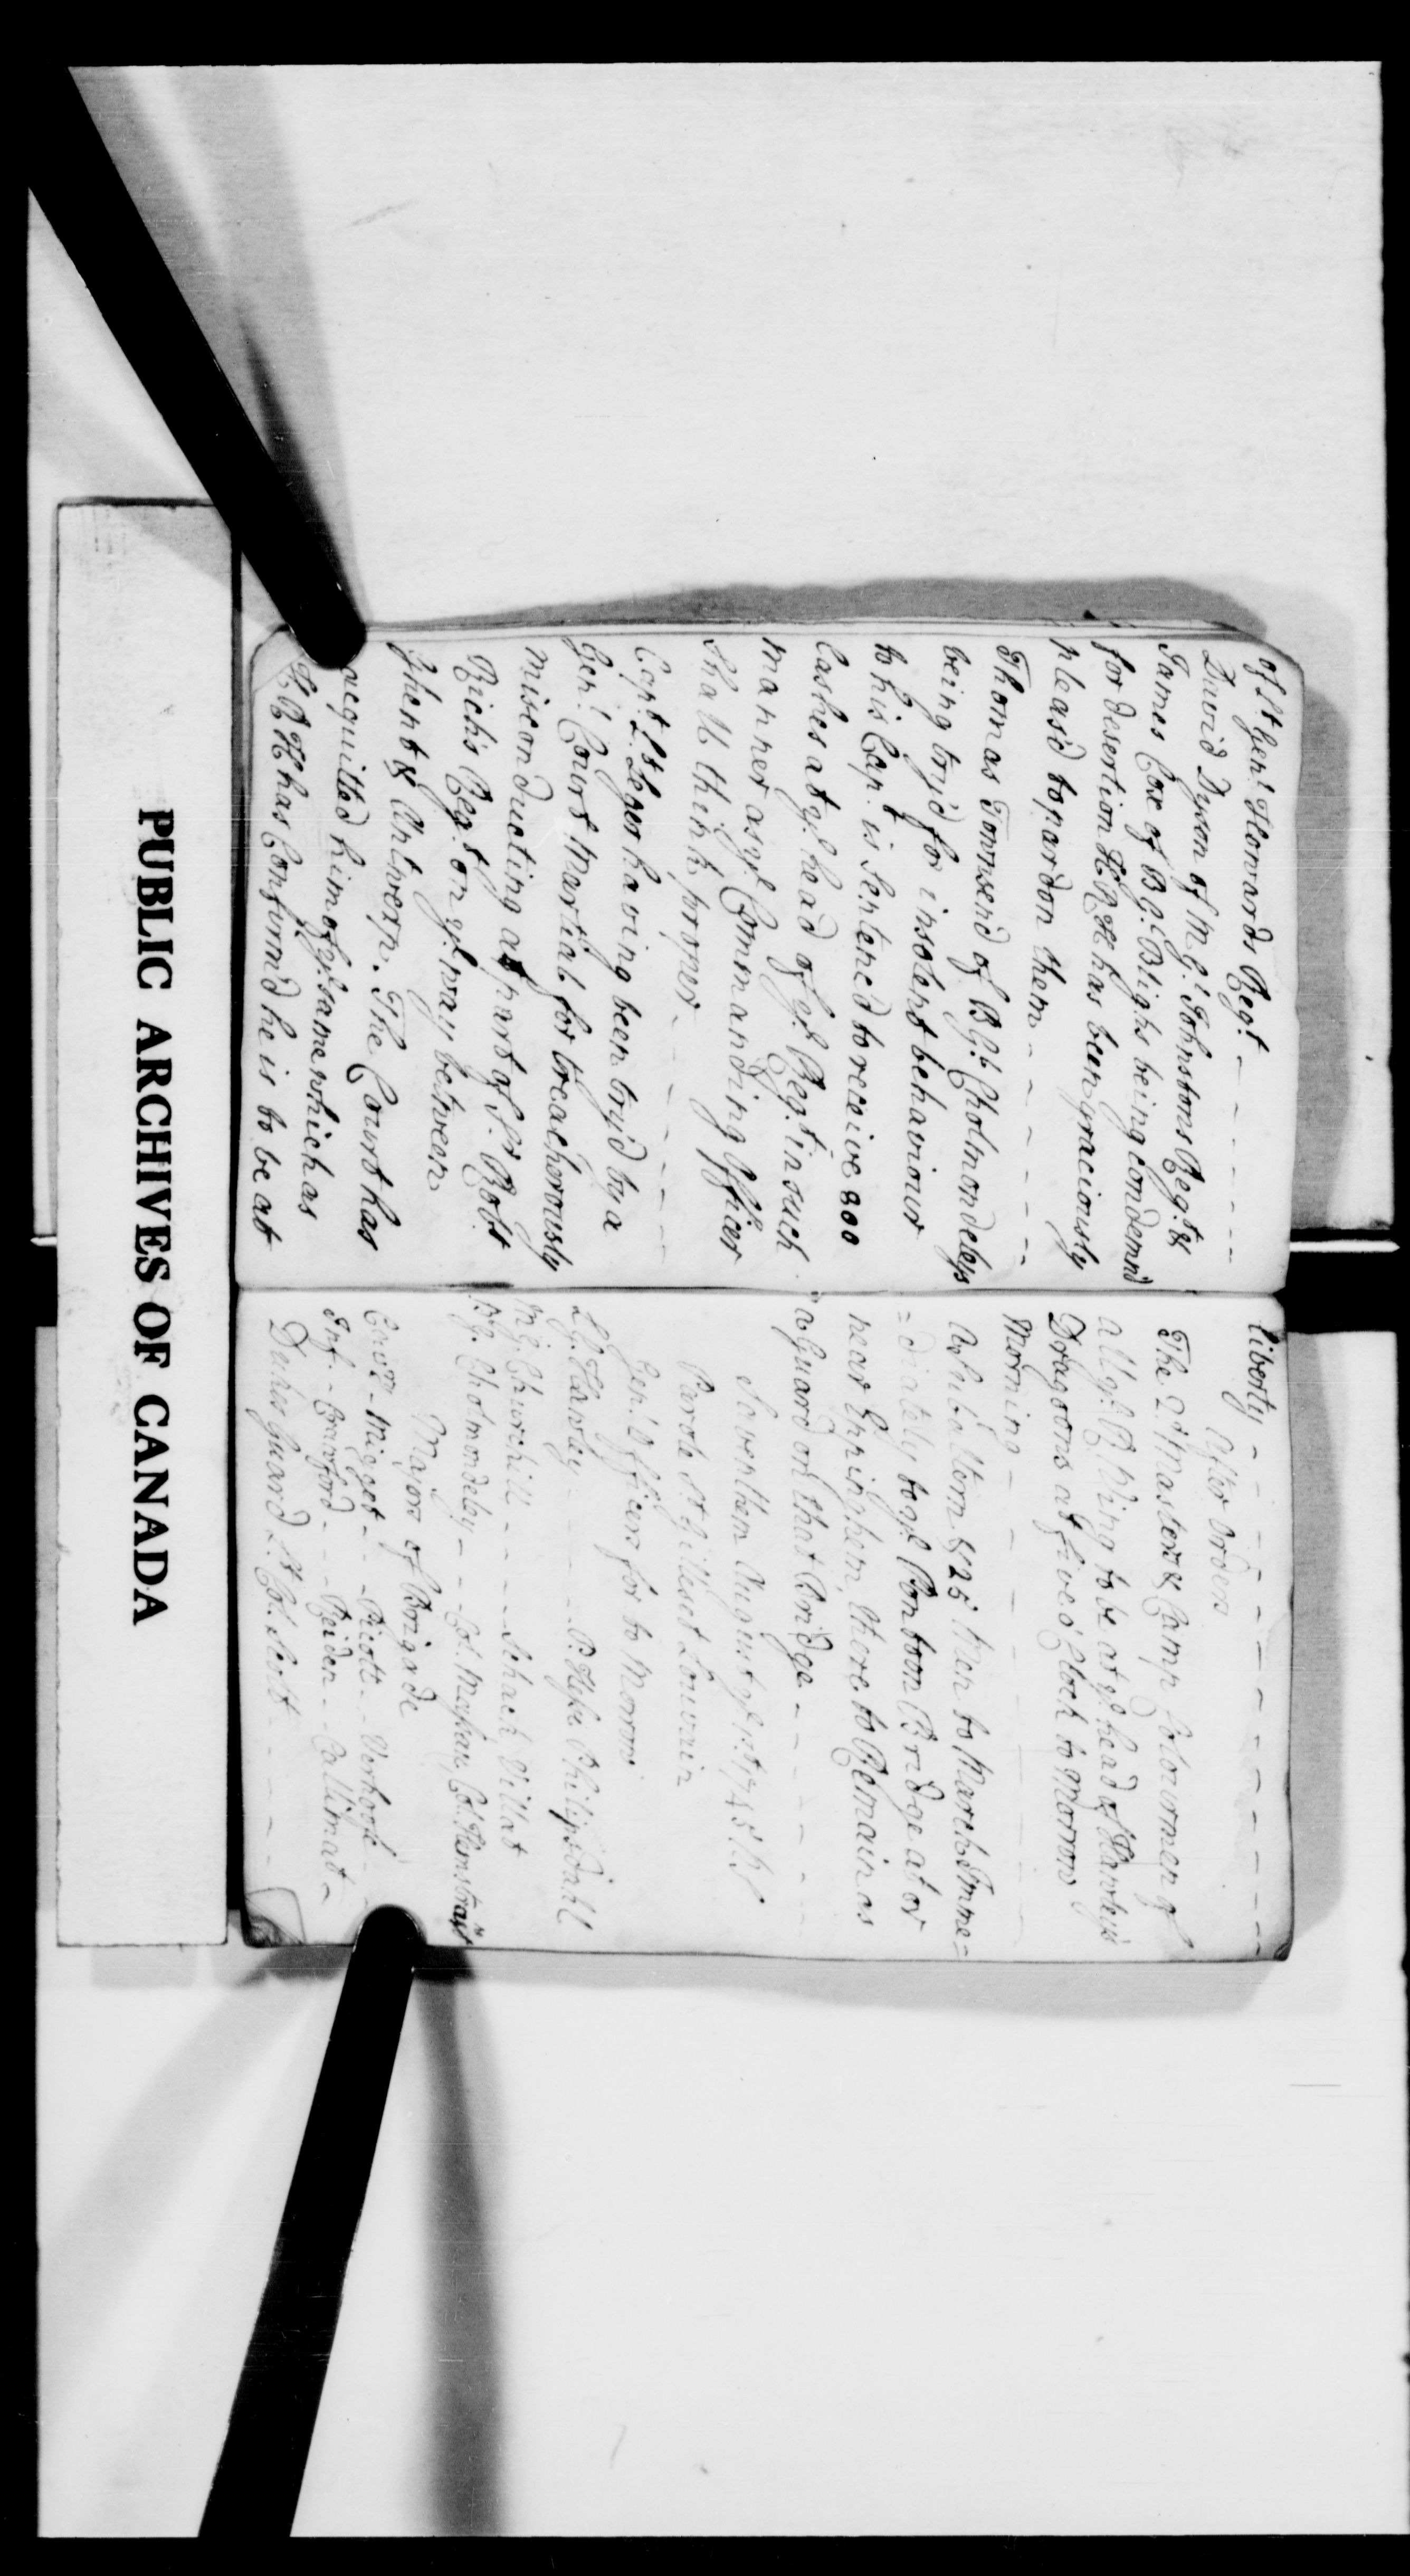 of Lt Genl Howards Regt
David Dyson of M Gl Johnstons Regt &
James Cox of B Gl Blighs being Condemn'd
for desertion H R H has been graciously
pleas'd to pardon them
Thomas Townsend of B Gl Cholmondeleys
being try'd for insolent behaviour
to his Capt is Sentenc'd to receive 800
lashes at ye head of ye Regt in such
manner as ye Commanding Officer
Shall think proper
Capt St Leger having been try'd by a
Genl Court Martial for treacherously
misconducting a part of Sr Robt
Richs Regt on ye way between
Ghent & Antwerp. The Court has
acquitted him of ye same which as
H R H has Confirm'd he is to be at
liberty
After Orders
The Qr Masters & Camp Colourmen of
all ye R Wing to be at ye head of Hawleys
Dragoons at five o'Clock to Morrow
Morning
A Subaltern & 25 Men to March Imme=
=diately to ye Pontoon Bridge at or
near Eppinghem, there to Remain as
a Guard on that Bridge
Saventhem August ye 1st 1745 NS
Parole St Gilles et Louvain
Genl Officers for to Morrow
L G. Hawley P. Hesse Philipsdahl
M G. Churchill Schack Villat
B G. Cholmondeley Col.
Majors of Brigade
Cavr Migget
Inf. Crawford Reiden
Dukes Guard Lt Col. Scott
PUBLIC ARCHIVES OF CANADA